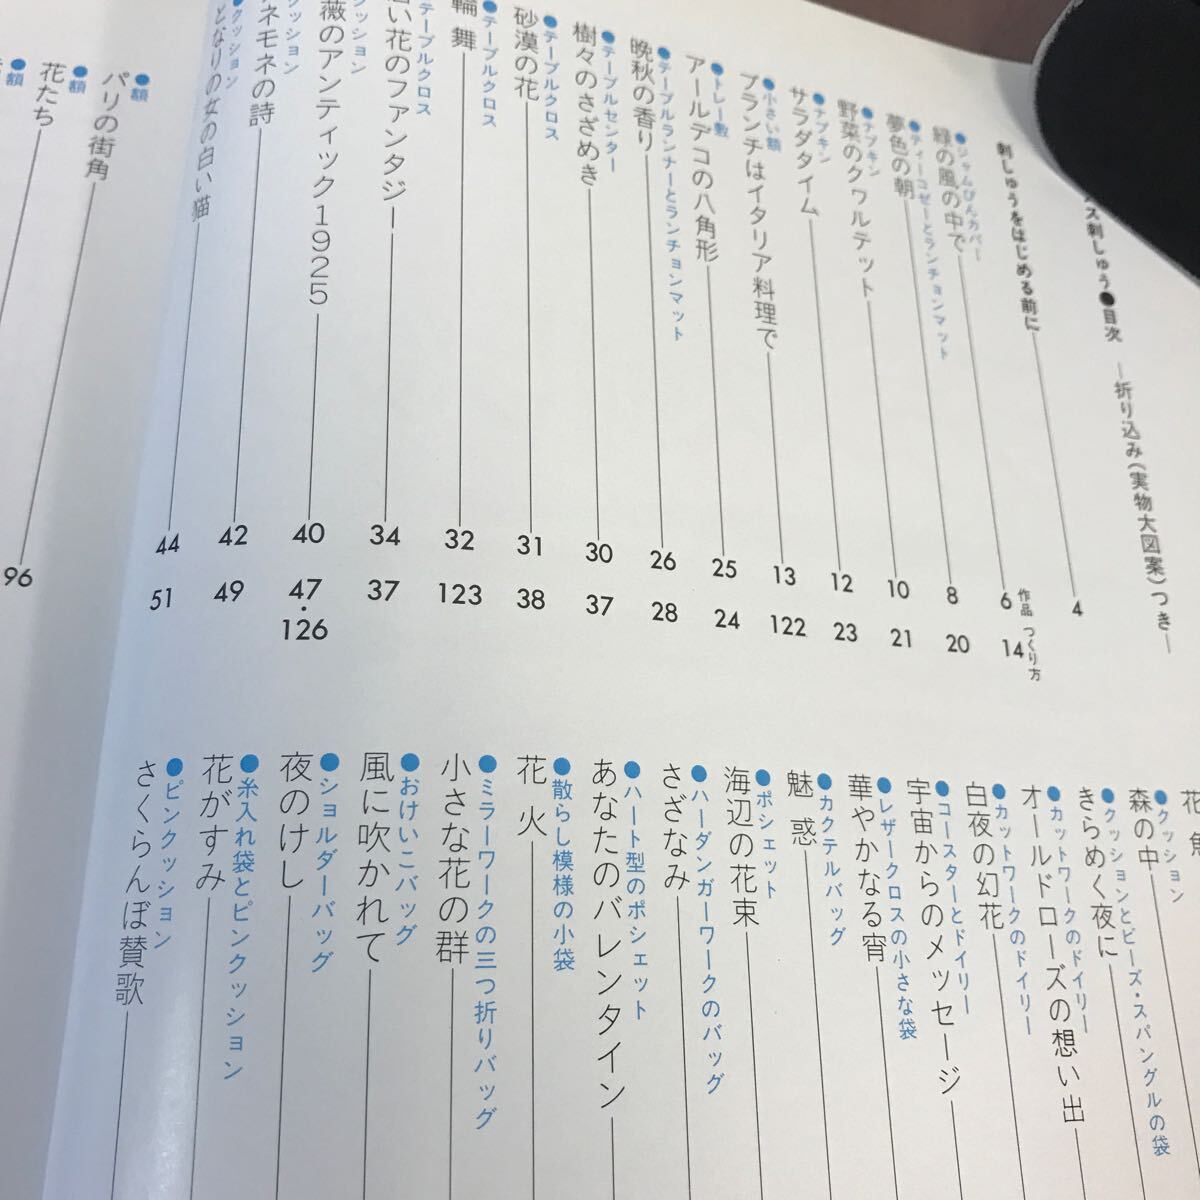 ス刺しゅう●目次 ―折り込み(実物大図案)つき―
刺しゅうをはじめる前に 4
作品 つくり方
●ジャムびんカバー
緑の風の中で 6 14
●ティーコゼーとランチョンマット
夢色の朝 8 20
●ナプキン
野菜のクワルテット 10 21
●ナプキン
サラダタイム 12 23
●小さい額
ブランチはイタリア料理で 13 122
●トレー敷
アールデコの八角形 25 24
●テーブルランナーとランチョンマット
晩秋の香り 26 28
●テーブルセンター
樹々のさざめき 30 37
●テーブルクロス
砂漠の花 31 38
●テーブルクロス
輪舞 32 123
テーブルクロス
い花のファンタジー 34 37
クッション
薇のアンティック1925 40 47・126
クッション
ネモネの詩 42 49
●クッション
となりの女の白い猫 44 51
●額
パリの街角 96
●額
花たち
●額
花
●クッション
森の中
●クッションとビーズ・スパングルの袋
きらめく夜に
●カットワークのドイリー
オールドローズの想い出
●カットワークのドイリー
白夜の幻花
●コースターとドイリー
宇宙からのメッセージ
●レザークロスの小さな袋
華やかなる宵
●カクテルバッグ
魅惑
●ポシェット
海辺の花束
●ハーダンガーワークのバッグ
さざなみ
●ハート型のポシェット
あなたのバレンタイン
●散らし模様の小袋
花火
●ミラーワークの三つ折りバッグ
小さな花の群
●おけいこバッグ
風に吹かれて
●ショルダーバッグ
夜のけし
●糸入れ袋とピンクッション
花がすみ
●ピンクッション
さくらんぼ賛歌